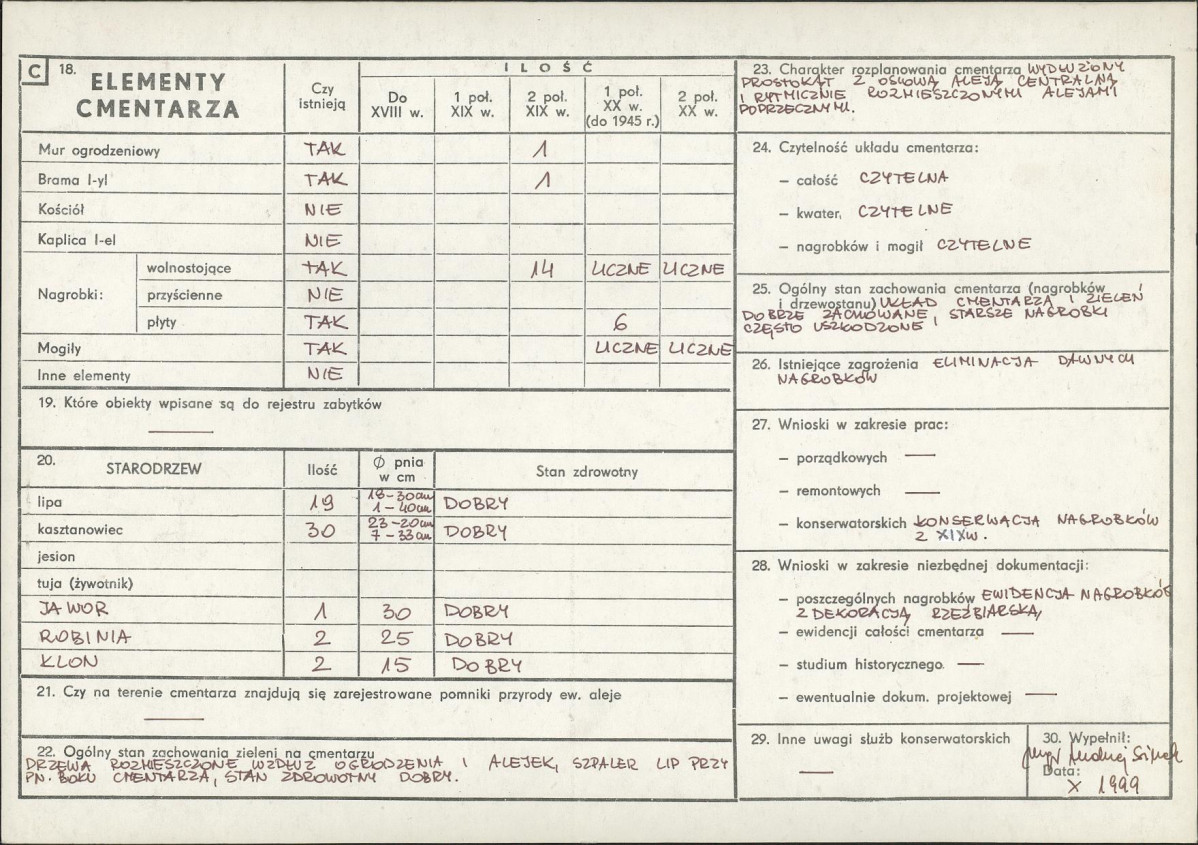 C 18. ELEMENTY CMENTARZA
Czy istnieją
ILOŚĆ
Do XVIII w.
1 poł. XIX w.
2 poł. XIX w.
1 poł. XX w. (do 1945 r.)
2 poł. XX w.
Mur ogrodzeniowy TAK 1
Brama I-yl TAK 1
Kościół NIE
Kaplica I-el NIE
Nagrobki:
wolnostojące TAK 14 LICZNE LICZNE
przyścienne NIE
płyty TAK 6
Mogiły TAK LICZNE LICZNE
Inne elementy NIE
19. Które obiekty wpisane są do rejestru zabytków
—
20. STARODRZEW Ilość Ø pnia w cm Stan zdrowotny
lipa 19 18-30cm 1-40cm DOBRY
kasztanowiec 30 23-20cm 7-33cm DOBRY
jesion
tuja (żywotnik)
JAWOR 1 30 DOBRY
ROBINIA 2 25 DOBRY
KLON 2 15 DOBRY
21. Czy na terenie cmentarza znajdują się zarejestrowane pomniki przyrody ew. aleje
—
22. Ogólny stan zachowania zieleni na cmentarzu
DRZEWA ROZMIESZCZONE WZDŁUŻ OGRODZENIA I ALEJEK, SZPALER LIP PRZY
PN. BOKU CMENTARZA, STAN ZDROWOTNY DOBRY.
23. Charakter rozplanowania cmentarza WYDŁUŻONY
PROSTOKĄT Z OSIOWĄ ALEJĄ CENTRALNĄ
I RYTMICZNIE ROZMIESZCZONYMI ALEJAMI
POPRZECZNYMI.
24. Czytelność układu cmentarza:
– całość CZYTELNA
– kwater, CZYTELNE
– nagrobków i mogił CZYTELNE
25. Ogólny stan zachowania cmentarza (nagrobków
i drzewostanu) UKŁAD CMENTARZA I ZIELEŃ
DOBRZE ZACHOWANE, STARSZE NAGROBKI
CZĘSTO USZKODZONE
26. Istniejące zagrożenia ELIMINACJA DAWNYCH
NAGROBKÓW
27. Wnioski w zakresie prac:
– porządkowych —
– remontowych —
– konserwatorskich KONSERWACJA NAGROBKÓW
Z XIXW.
28. Wnioski w zakresie niezbędnej dokumentacji:
– poszczególnych nagrobków EWIDENCJA NAGROBKÓW
Z DEKORACJĄ RZEŹBIARSKĄ
– ewidencji całości cmentarza —
– studium historycznego —
– ewentualnie dokum. projektowej —
29. Inne uwagi służb konserwatorskich
—
30. Wypełnił:
mgr Andrzej
Data:
X 1999